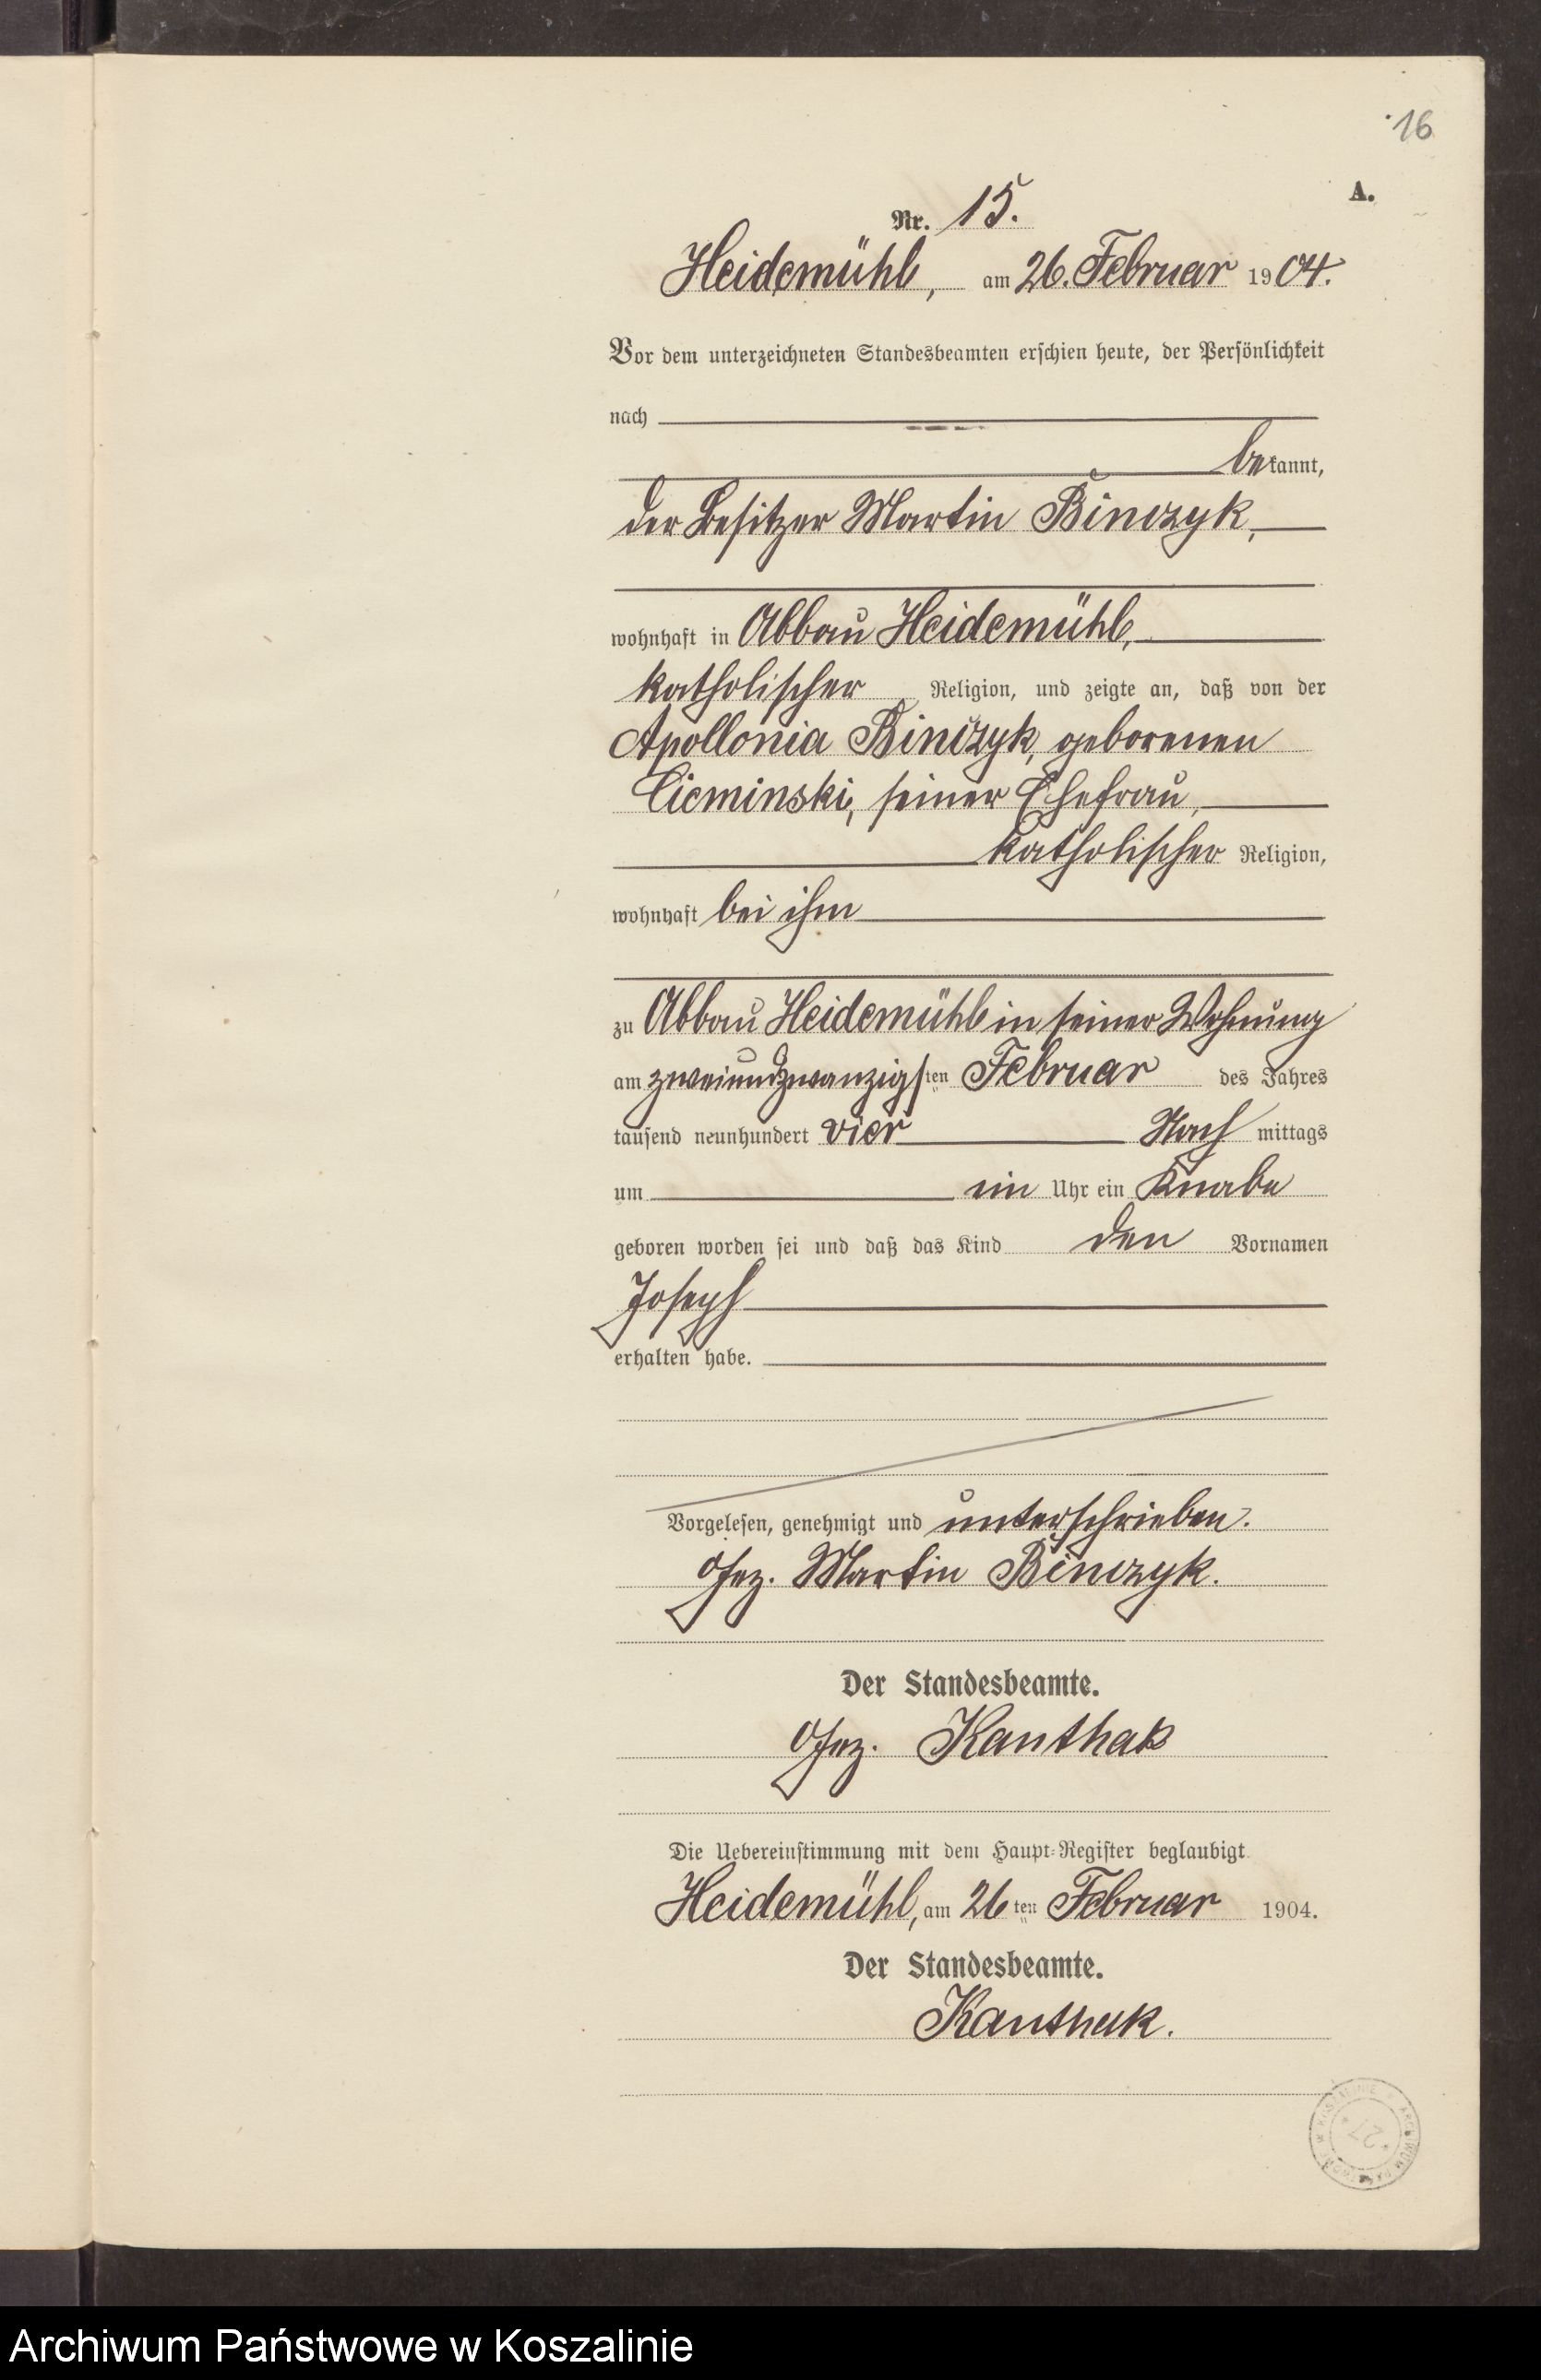 16
A.
Nr. 15.
Heidemühl, am 26. Februar 1904.
Vor dem unterzeichneten Standesbeamten erschien heute, der Persönlichkeit
nach
bekannt,
der Besitzer Martin Binczyk,
wohnhaft in Abbau Heidemühl,
katholischer Religion, und zeigte an, daß von der
Apollonia Binczyk, geborenen
Cieminski, seiner Ehefrau,
katholischer Religion,
wohnhaft bei ihm
zu Abbau Heidemühl in seiner Wohnung
am zweiundzwanzigsten Februar des Jahres
tausend neunhundert vier Nachmittags
um ein Uhr ein Knabe
geboren worden sei und daß das Kind den Vornamen
Joseph
erhalten habe.
Vorgelesen, genehmigt und unterschrieben.
Gez. Martin Binczyk.
Der Standesbeamte.
Gez. Kanthak
Die Uebereinstimmung mit dem Haupt-Register beglaubigt
Heidemühl, am 26ten Februar 1904.
Der Standesbeamte.
Kanthak.
Archiwum Państwowe w Koszalinie